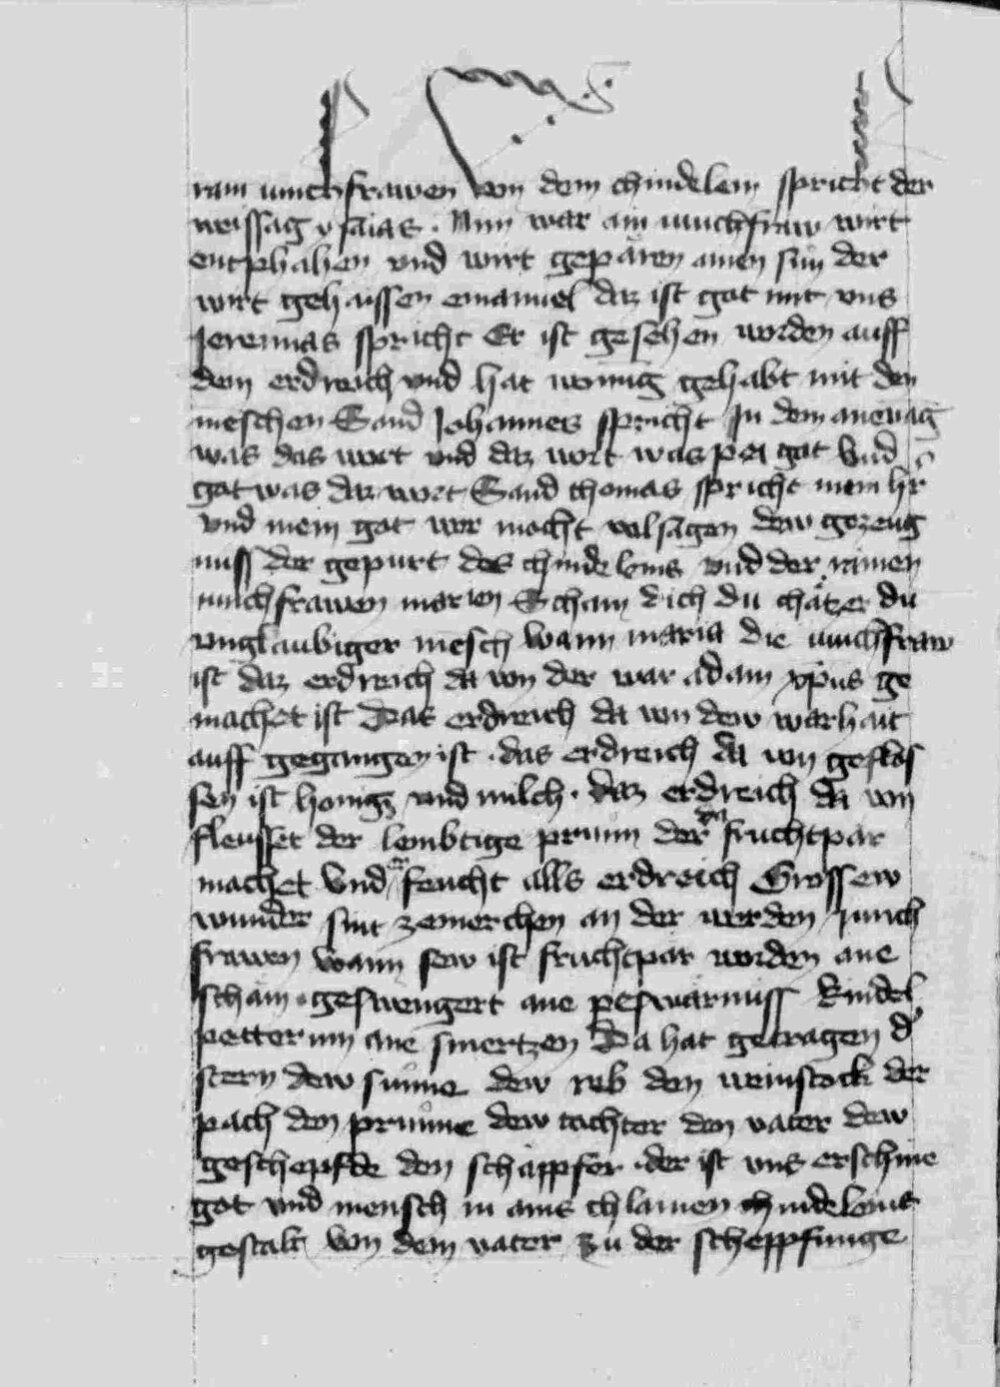 rain iunchfrawen von dem chindelein spricht der
weissag ysaias . Nim war ain iunchfraw wirt
entphahen vnd wirt geparen ainen sun der
wirt gehaissen emanuel daz ist got mit vns
Jeremias spricht Er ist gesehen worden auff
dem erdreich vnd hat wonung gehabt mit den
meschen Sand Johannes spricht In dem anevag
was das wort vnd daz wort was pei got Vnd
got was daz wort Sand thomas spricht mein hr̃
vnd mein got wer mocht volsagen dew gezeug
nuss der gepurt des chindeleins vnd der rainen
iunchfrawen marien Scham dich du chätzer du
vnglaubiger mesch wann maria die iunchfraw
ist daz erdreich da von der war adam xp̃us ge
machet ist Das erdreich da von dew warhait
auff gegangen ist . das erdreich da von geflos
sen ist honig vnd milch . daz erdreich da von
fleusset der lembtige prunn der da fruchtpar
machet Vnd er feucht alls erdreich Grossew
wunder sint zemerchen an der werden junch
frawen wann sew ist fruchtpar worden ane
scham . geswengert ane peswarnuss kindel
petterinn ane smertzen Da hat getragen d'
stern dew sunne dew reb den weinstock der
pach den prunne dew tochter den vater dew
geschepfde den schäppfer . der ist vns erschine
got vnd mensch in ains chlainen chindeleins
gestalt von dem vater zu der scheppfunge